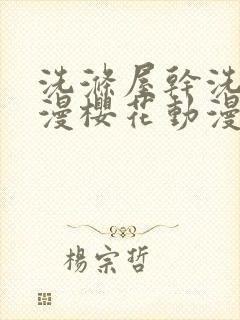 洗滌屋幹洗
漫櫻花動漫
楊宗哲